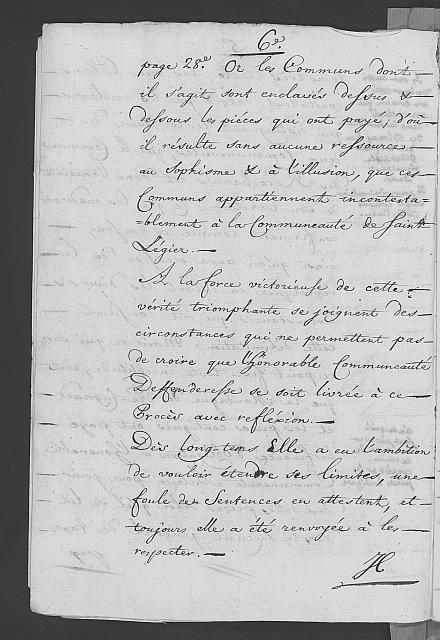 6e.
page 28.e Or les Communs dont
il s'agit sont enclavés dessus &
dessous les piéces qui ont payé; d'où
il résulte sans aucune ressource
au Sophisme & à l'illusion, que ces
Communs appartiennent incontesta=
=blement à la Communeauté de Saint
Légier. —
A la force victorieuse de cette
vérité triomphante se joignent des
circonstances qui ne permettent pas
de croire que l'honorable Communeauté
Deffenderesse se soit livrée à ce
Procès avec refléxion. —
Dès long-tens Elle a eu l'ambition
de vouloir étendre ses limites, une
foule de Sentences en attestent, et
toujours elle a été renvoyée à les
respecter. —